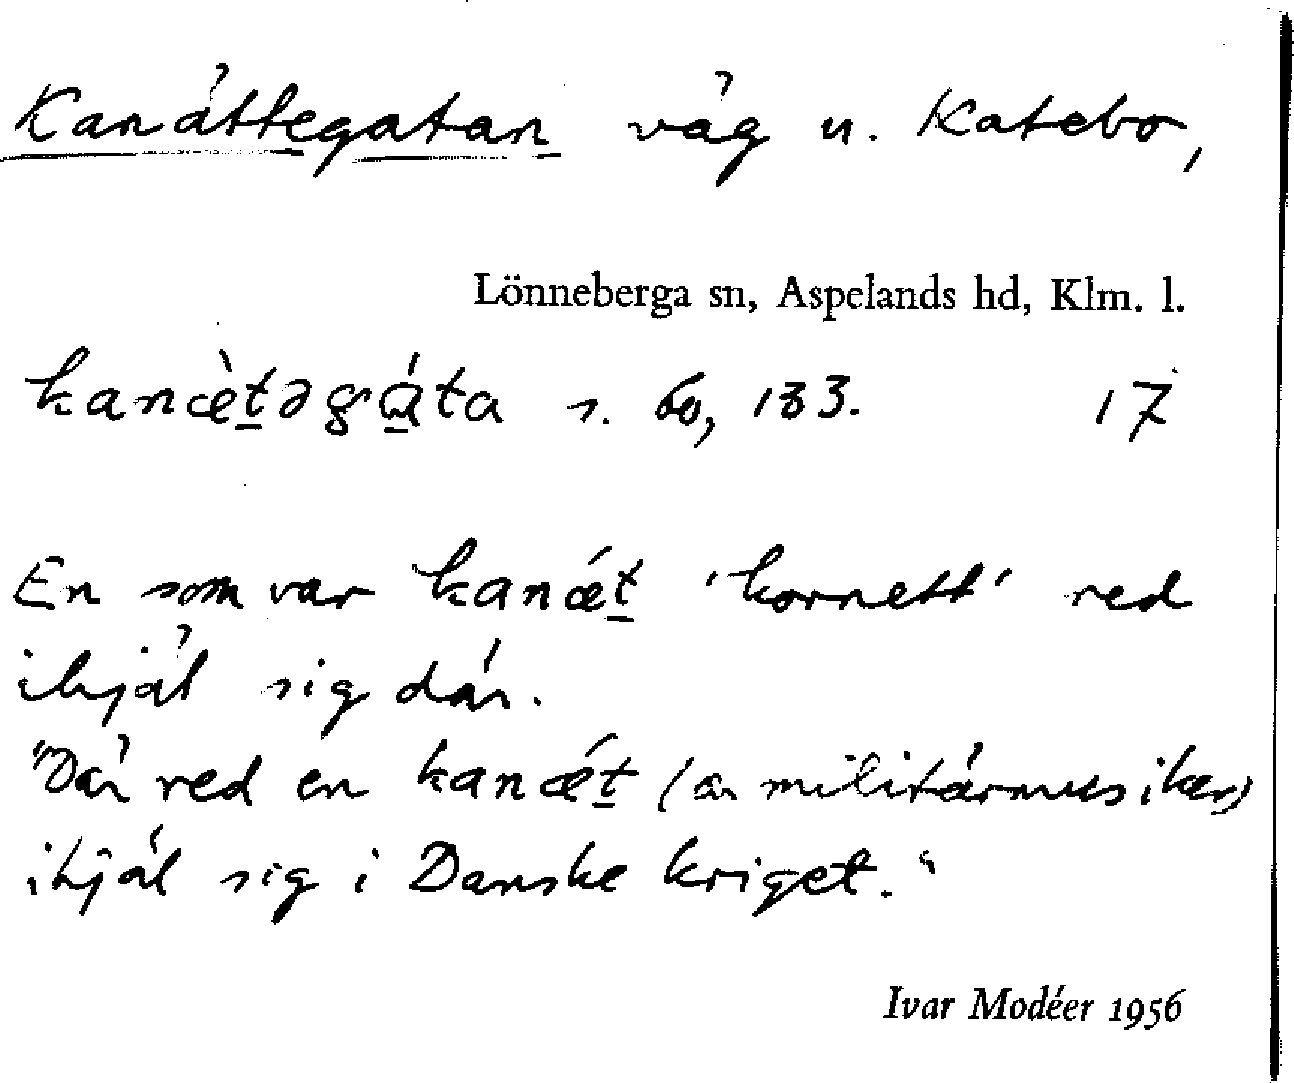 Kanättegatan väg u. Katebo,
Lönneberga sn, Aspelands hd, Klm. l.
kanæ̀ṯəgɑ̱́ta s. 60, 133. 17
En som var kanǽṯ 'kornett' red
ihjäl sig där.
"Där red en kanǽṯ (är militärmusiker)
ihjäl sig i Danske kriget."
Ivar Modéer 1956